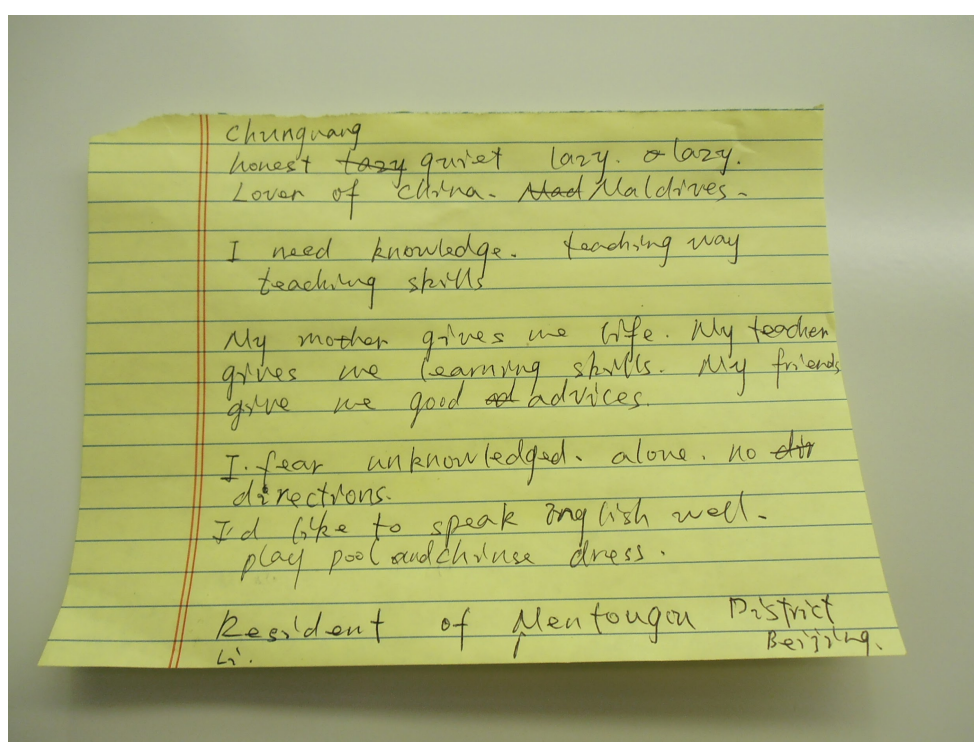 Chunguang
honest quiet lazy. lazy.
Lover of China. Maldives.
I need knowledge. teaching way
teaching skills
My mother gives me life. My teacher
gives me learning skills. My friends
give me good advices.
I fear unknowledged. alone. no
directions.
I'd like to speak English well.
play pool and chinse dress.
Resident of Mentougou District
Beijing.
Li.